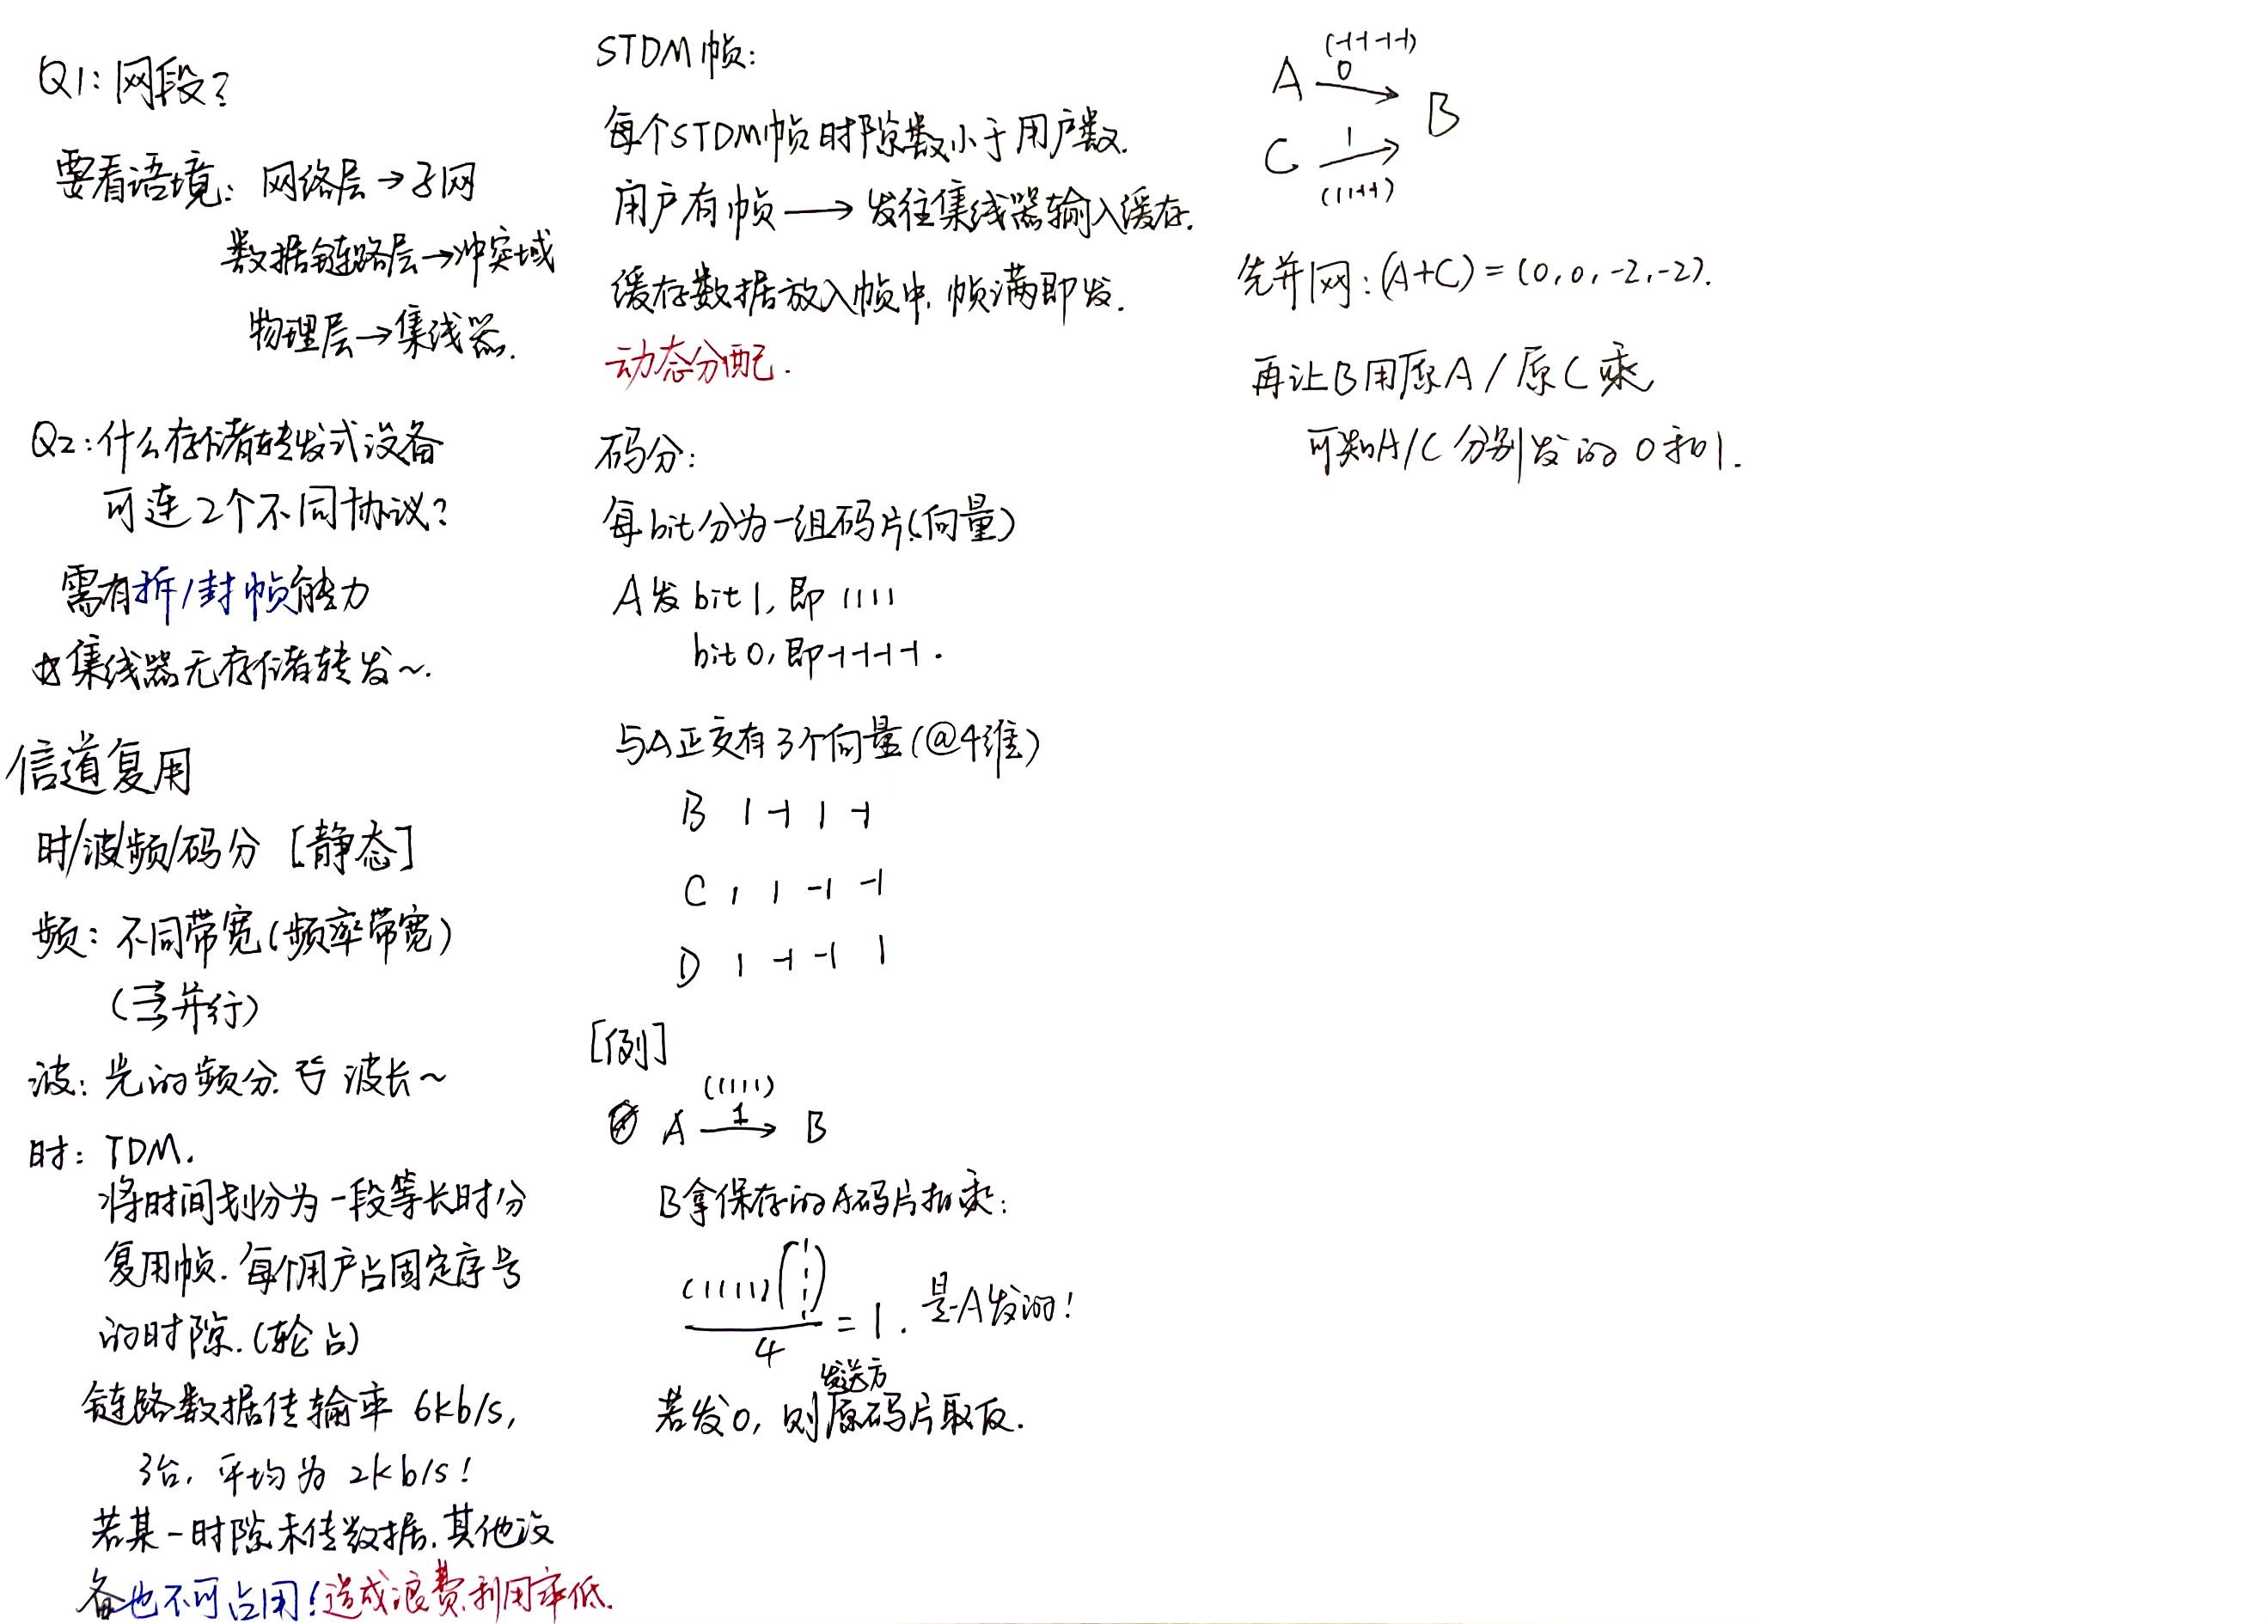 Q1: 网段?
要看语境: 网络层→子网
数据链路层→冲突域
物理层→集线器.
Q2: 什么存储转发式设备
可连2个不同协议?
需有拆/封帧能力
集线器无存储转发~.
信道复用
时/波/频/码分 [静态]
频: 不同带宽(频率带宽)
(并行)
波: 光的频分. 波长~
时: TDM.
将时间划分为一段等长时分
复用帧. 每个用户占固定序号
的时隙. (轮占)
链路数据传输率 6kb/s,
3台, 平均为 2kb/s!
若某一时隙未传数据, 其他设
备也不可占用! 造成浪费, 利用率低.
STDM帧:
每个STDM帧时隙数小于用户数.
用户有帧 → 发往集线器输入缓存.
缓存数据放入帧中, 帧满即发.
动态分配.
码分:
每bit分为一组码片(向量)
A发 bit1, 即 1111
bit0, 即 -1-1-1-1.
与A正交有3个向量(@4维)
B 1 -1 1 -1
C 1 1 -1 -1
D 1 -1 -1 1
[例]
(1111)
A 1→ B
B拿保存的A码片相乘:
(1111)(1111)/4 = 1. 是A发的!
发送方
若发0, 则原码片取反.
(-1-1-1-1)
A 0→ B
C 1→
(11-1-1)
先并网: (A+C) = (0,0,-2,-2).
再让B用原A/原C乘
可知A/C分别发的0和1.